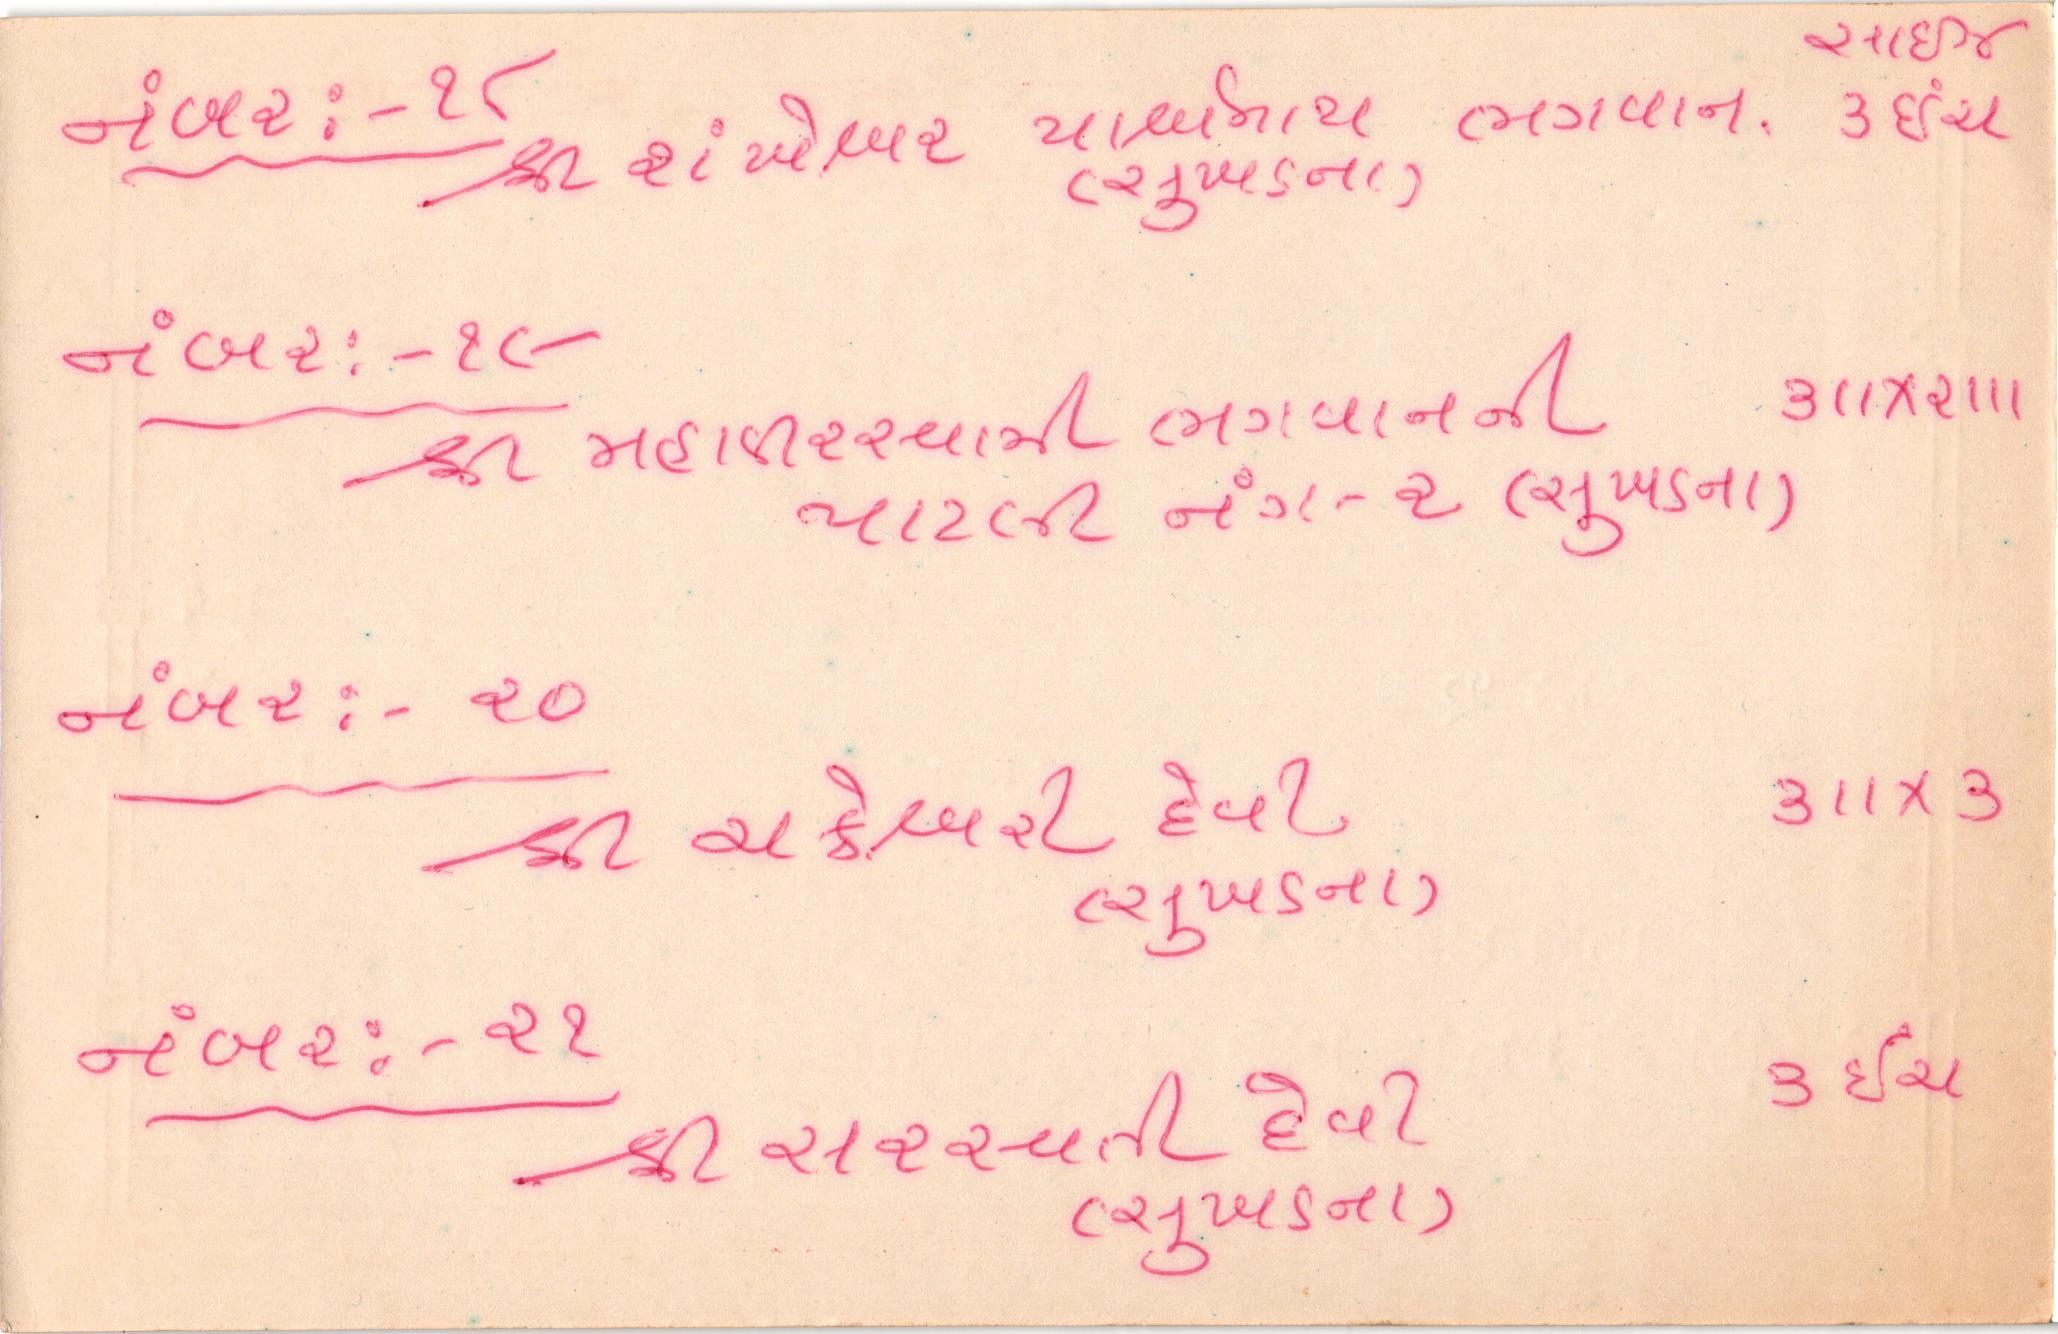 સાઈજ
નંબર:-૧૮
શ્રી શંખેશ્વર પાર્શ્વનાથ ભગવાન. ૩ ઇંચ
(સુખડના)
નંબર:-૧૯
શ્રી મહાવીરસ્વામી ભગવાનની ૩॥×૨॥।
પાટલી નંગ-૨ (સુખડના)
નંબર:- ૨૦
શ્રી ચક્રેશ્વરી દેવી ૩॥×૩
(સુખડના)
નંબર:-૨૧
શ્રી સરસ્વતી દેવી ૩ ઈંચ
(સુખડના)